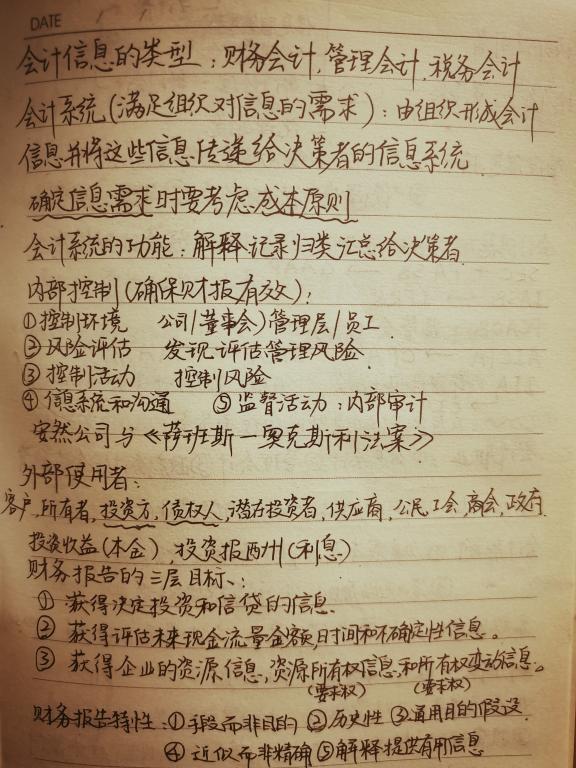 DATE
会计信息的类型：财务会计，管理会计，税务会计
会计系统(满足组织对信息的需求)：由组织形成会计
信息并将这些信息传递给决策者的信息系统
确定信息需求时要考虑成本原则
会计系统的功能：解释记录归类汇总给决策者
内部控制(确保财报有效)：
①控制环境 公司/董事会)管理层/员工
②风险评估 发现评估管理风险
③控制活动 控制风险
④信息系统和沟通 ⑤监督活动：内部审计
安然公司与《萨班斯一奥克斯利法案》
外部使用者：
客户,所有者,投资方,债权人,潜在投资者,供应商,公民工会,商会,政府
投资收益(本金),投资报酬(利息)
财务报告的三层目标、：
①获得决定投资和信贷的信息.
②获得评估未来现金流量金额,时间和不确定性信息。
③获得企业的资源信息,资源所有权信息,和所有权变动信息。
(要求权) (要求权)
财务报告特性：①手段而非目的 ②历史性 ③通用目的假设.
④近似而非精确 ⑤解释提供有用信息